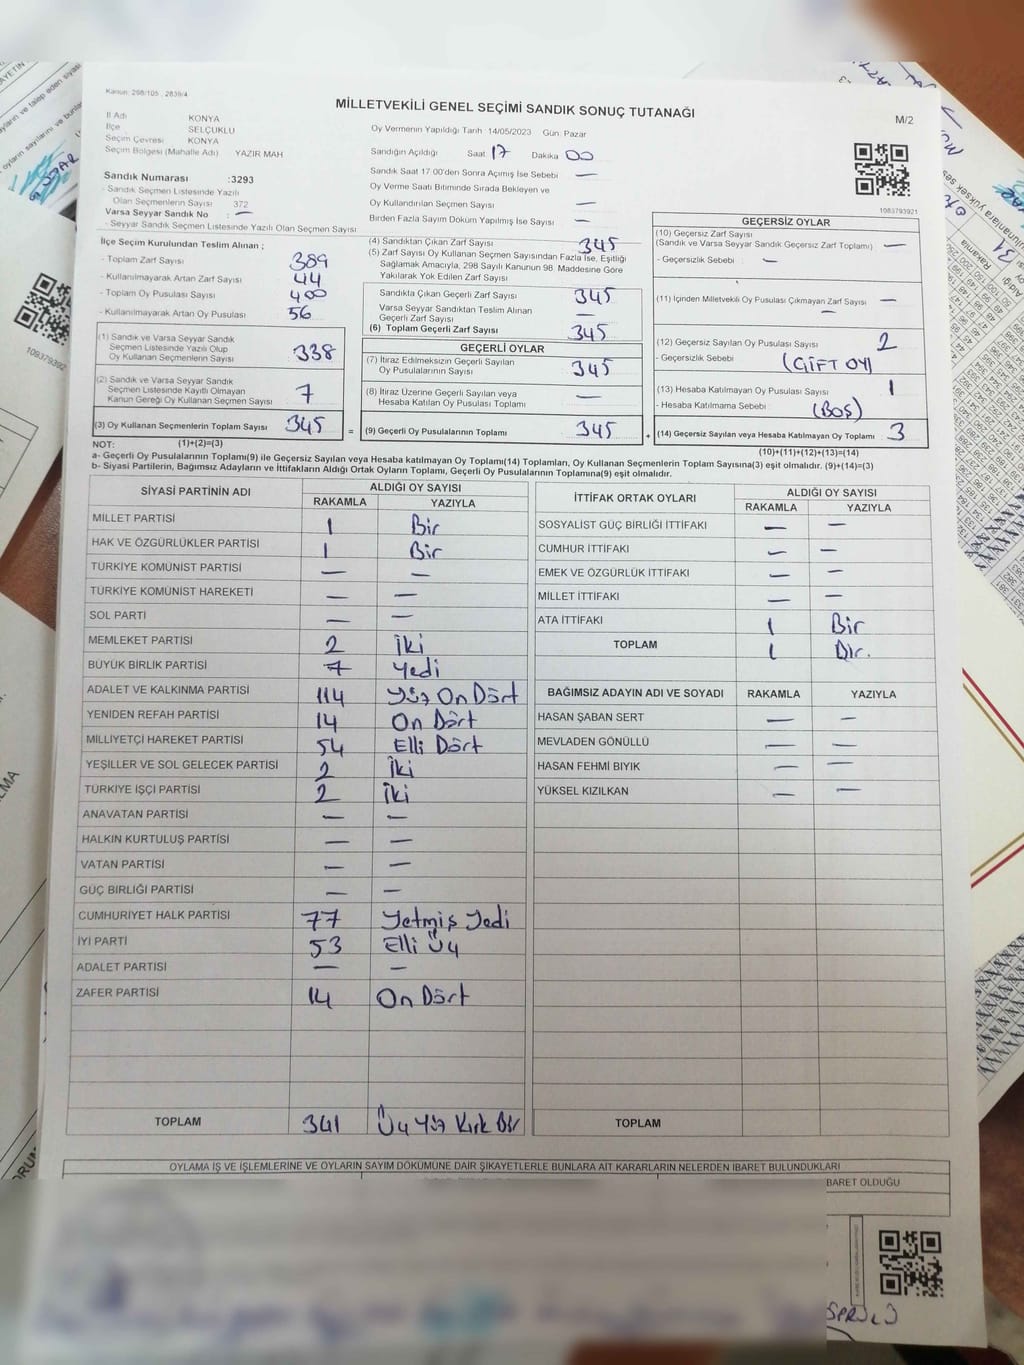 Kanun: 298/105 , 2839/4
MİLLETVEKİLİ GENEL SEÇİMİ SANDIK SONUÇ TUTANAĞI
M/2
İl Adı KONYA
İlçe SELÇUKLU
Seçim Çevresi KONYA
Seçim Bölgesi (Mahalle Adı) YAZIR MAH
Sandık Numarası :3293
- Sandık Seçmen Listesinde Yazılı
Olan Seçmenlerin Sayısı 372
Varsa Seyyar Sandık No : —
- Seyyar Sandık Seçmen Listesinde Yazılı Olan Seçmen Sayısı
Oy Vermenin Yapıldığı Tarih 14/05/2023 Gün: Pazar
Sandığın Açıldığı Saat 17 Dakika 00
Sandık Saat 17:00'den Sonra Açımış İse Sebebi —
Oy Verme Saati Bitiminde Sırada Bekleyen ve
Oy Kullandırılan Seçmen Sayısı —
Birden Fazla Sayım Döküm Yapılmış İse Sayısı —
1083793921
İlçe Seçim Kurulundan Teslim Alınan ;
- Toplam Zarf Sayısı 389
- Kullanılmayarak Artan Zarf Sayısı 44
- Toplam Oy Pusulası Sayısı 400
- Kullanılmayarak Artan Oy Pusulası 56
(1) Sandık ve Varsa Seyyar Sandık
Seçmen Listesinde Yazılı Olup
Oy Kullanan Seçmenlerin Sayısı 338
(2) Sandık ve Varsa Seyyar Sandık
Seçmen Listesinde Kayıtlı Olmayan
Kanun Gereği Oy Kullanan Seçmen Sayısı 7
(3) Oy Kullanan Seçmenlerin Toplam Sayısı 345 =
(4) Sandıktan Çıkan Zarf Sayısı 345
(5) Zarf Sayısı Oy Kullanan Seçmen Sayısından Fazla İse, Eşitliği
Sağlamak Amacıyla, 298 Sayılı Kanunun 98. Maddesine Göre
Yakılarak Yok Edilen Zarf Sayısı
Sandıkta Çıkan Geçerli Zarf Sayısı 345
Varsa Seyyar Sandıktan Teslim Alınan
Geçerli Zarf Sayısı —
(6) Toplam Geçerli Zarf Sayısı 345
GEÇERLİ OYLAR
(7) İtiraz Edilmeksizin Geçerli Sayılan
Oy Pusulalarının Sayısı 345
(8) İtiraz Üzerine Geçerli Sayılan veya
Hesaba Katılan Oy Pusulası Toplamı —
(9) Geçerli Oy Pusulalarının Toplamı 345 +
GEÇERSİZ OYLAR
(10) Geçersiz Zarf Sayısı
(Sandık ve Varsa Seyyar Sandık Geçersiz Zarf Toplamı) —
- Geçersizlik Sebebi —
(11) İçinden Milletvekili Oy Pusulası Çıkmayan Zarf Sayısı —
—
(12) Geçersiz Sayılan Oy Pusulası Sayısı 2
- Geçersizlik Sebebi (ÇİFT OY)
(13) Hesaba Katılmayan Oy Pusulası Sayısı 1
- Hesaba Katılmama Sebebi (BOŞ)
(14) Geçersiz Sayılan veya Hesaba Katılmayan Oy Toplamı 3
NOT: (1)+(2)=(3) (10)+(11)+(12)+(13)=(14)
a- Geçerli Oy Pusulalarının Toplamı(9) ile Geçersiz Sayılan veya Hesaba Katılmayan Oy Toplamı(14) Toplamları, Oy Kullanan Seçmenlerin Toplam Sayısına(3) eşit olmalıdır. (9)+(14)=(3)
b- Siyasi Partilerin, Bağımsız Adayların ve İttifakların Aldığı Ortak Oyların Toplamı, Geçerli Oy Pusulalarının Toplamına(9) eşit olmalıdır.
SİYASİ PARTİNİN ADI ALDIĞI OY SAYISI
RAKAMLA YAZIYLA
MİLLET PARTİSİ 1 Bir
HAK VE ÖZGÜRLÜKLER PARTİSİ 1 Bir
TÜRKİYE KOMÜNİST PARTİSİ — —
TÜRKİYE KOMÜNİST HAREKETİ — —
SOL PARTİ — —
MEMLEKET PARTİSİ 2 İki
BÜYÜK BİRLİK PARTİSİ 7 Yedi
ADALET VE KALKINMA PARTİSİ 114 Yüz On Dört
YENİDEN REFAH PARTİSİ 14 On Dört
MİLLİYETÇİ HAREKET PARTİSİ 54 Elli Dört
YEŞİLLER VE SOL GELECEK PARTİSİ 2 İki
TÜRKİYE İŞÇİ PARTİSİ 2 İki
ANAVATAN PARTİSİ — —
HALKIN KURTULUŞ PARTİSİ — —
VATAN PARTİSİ — —
GÜÇ BİRLİĞİ PARTİSİ — —
CUMHURİYET HALK PARTİSİ 77 Yetmiş Yedi
İYİ PARTİ 53 Elli Üç
ADALET PARTİSİ — —
ZAFER PARTİSİ 14 On Dört
TOPLAM 341 Üç Yüz Kırk Bir
İTTİFAK ORTAK OYLARI ALDIĞI OY SAYISI
RAKAMLA YAZIYLA
SOSYALİST GÜÇ BİRLİĞİ İTTİFAKI — —
CUMHUR İTTİFAKI — —
EMEK VE ÖZGÜRLÜK İTTİFAKI — —
MİLLET İTTİFAKI — —
ATA İTTİFAKI 1 Bir
TOPLAM 1 Bir.
BAĞIMSIZ ADAYIN ADI VE SOYADI RAKAMLA YAZIYLA
HASAN ŞABAN SERT — —
MEVLADEN GÖNÜLLÜ — —
HASAN FEHMİ BIYIK — —
YÜKSEL KIZILKAN — —
TOPLAM
OYLAMA İŞ VE İŞLEMLERİNE VE OYLARIN SAYIM DÖKÜMÜNE DAİR ŞİKAYETLERLE BUNLARA AİT KARARLARIN NELERDEN İBARET BULUNDUKLARI
BARET OLDUĞU